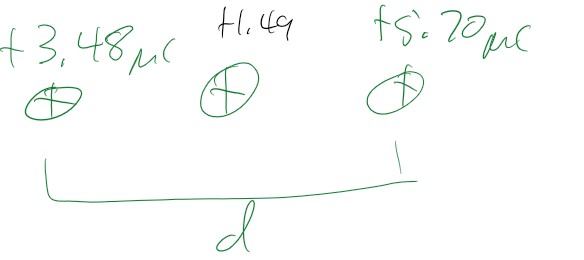 +3.48μC +1.49 +5.70μC
+ + +
d